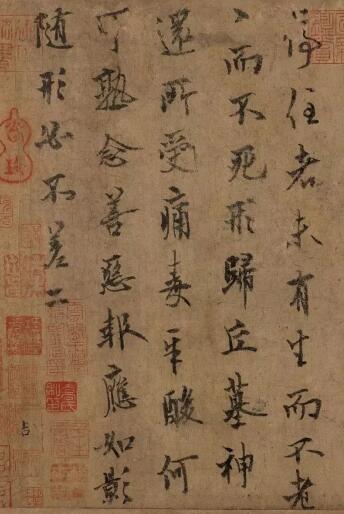 停住者未有生而不老
々而不死形歸丘墓神
還所受痛毒辛酸何
可熟念善惡報應如影
随形必不差二